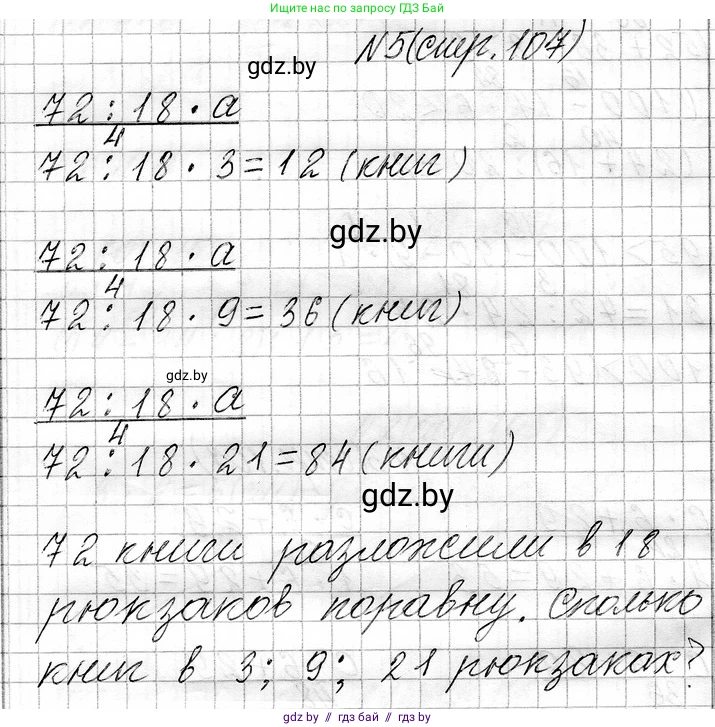 Ищите нас по запросу ГДЗ Бай
N5(стр. 107)
gdz.by
72 : 18 · a
4
72 : 18 · 3 = 12 (книг)
gdz.by
72 : 18 · a
4
72 : 18 · 9 = 36 (книг)
gdz.by
72 : 18 · a
4
72 : 18 · 21 = 84 (книги)
gdz.by
72 книги разложили в 18
рюкзаков поравну. Сколько
книг в 3; 9; 21 рюкзаках?
gdz.by // гдз бай // gdz.by